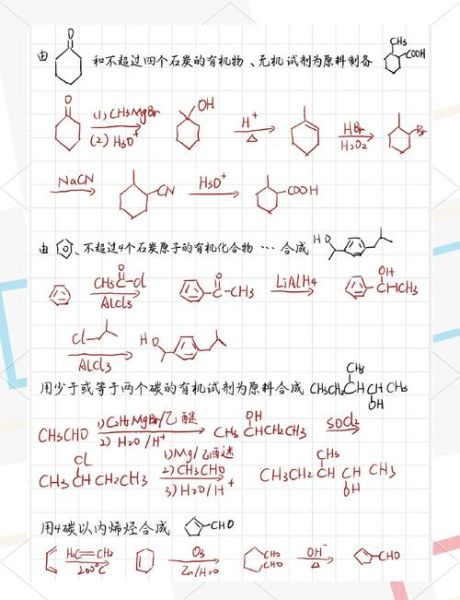 由 O 和不超过四个石炭的有机物、无机试剂为原料制备 CH₃ COOH
O (1) CH₃MgBr (2) H₃O⁺ OH H⁺ △ HBr H₂O₂ Br
NaCN CN H₃O⁺ COOH
由 、不超过4个石炭原子的有机化合物 … 合成 HO
CH₃C-Cl O AlCl₃ O C-CH₃ LiAlH₄ OH CHCH₃
Cl AlCl₃ HO
用少于或等于两个碳的有机试剂为原料合成 CH₃CH₂CHCHCH₃ CH₃ OH
CH₃CHO 1) C₂H₅MgBr/乙醚 2) H₂O/H⁺ CH₃CHCH₂CH₃ OH SOCl₂
Cl CH₃CHCH₂CH₃ 1) Mg/乙醚 2) CH₃CHO 3) H₂O/H⁺ CH₃CH₂CHCHCH₃ CH₃ OH
用4碳以内烯烃合成 CHO
H₂C=CH₂ 200℃ O₃ Zn/H₂O CHO CHO OH⁻ △ CHO